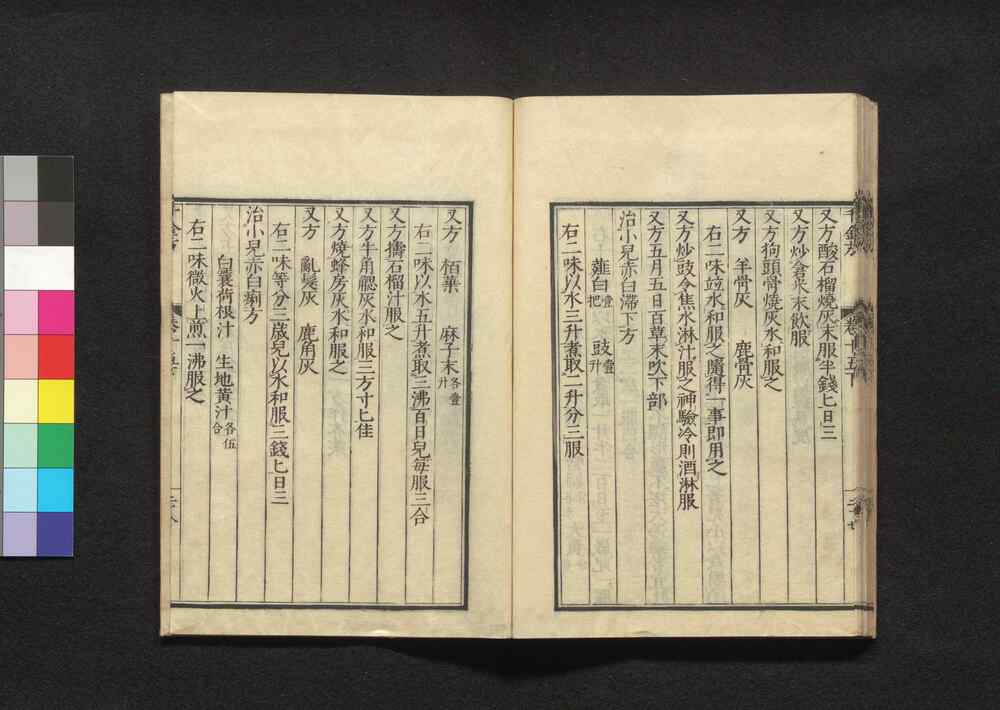 又方酸石榴燒灰末服半錢匕日三
又方炒倉米末飲服
又方狗頭骨燒灰水和服之
又方 羊骨灰 鹿骨灰
右二味竝水和服之隨得一事即用之
又方炒豉令焦水淋汁服之神驗冷則酒淋服
又方五月五日百草末吹下部
治小兒赤白滯下方
薤白壹把 豉壹升
右二味以水三升煮取二升分三服
又方 栢葉 麻子末各壹升
右二味以水五升煮取三沸百日兒每服三合
又方擣石榴汁服之
又方牛角䚡灰水和服三方寸匕佳
又方燒蜂房灰水和服之
又方 亂髮灰 鹿角灰
右二味等分三歲兒以水和服三錢匕日三
治小兒赤白痢方
白蘘荷根汁 生地黃汁各伍合
右二味微火上煎一沸服之